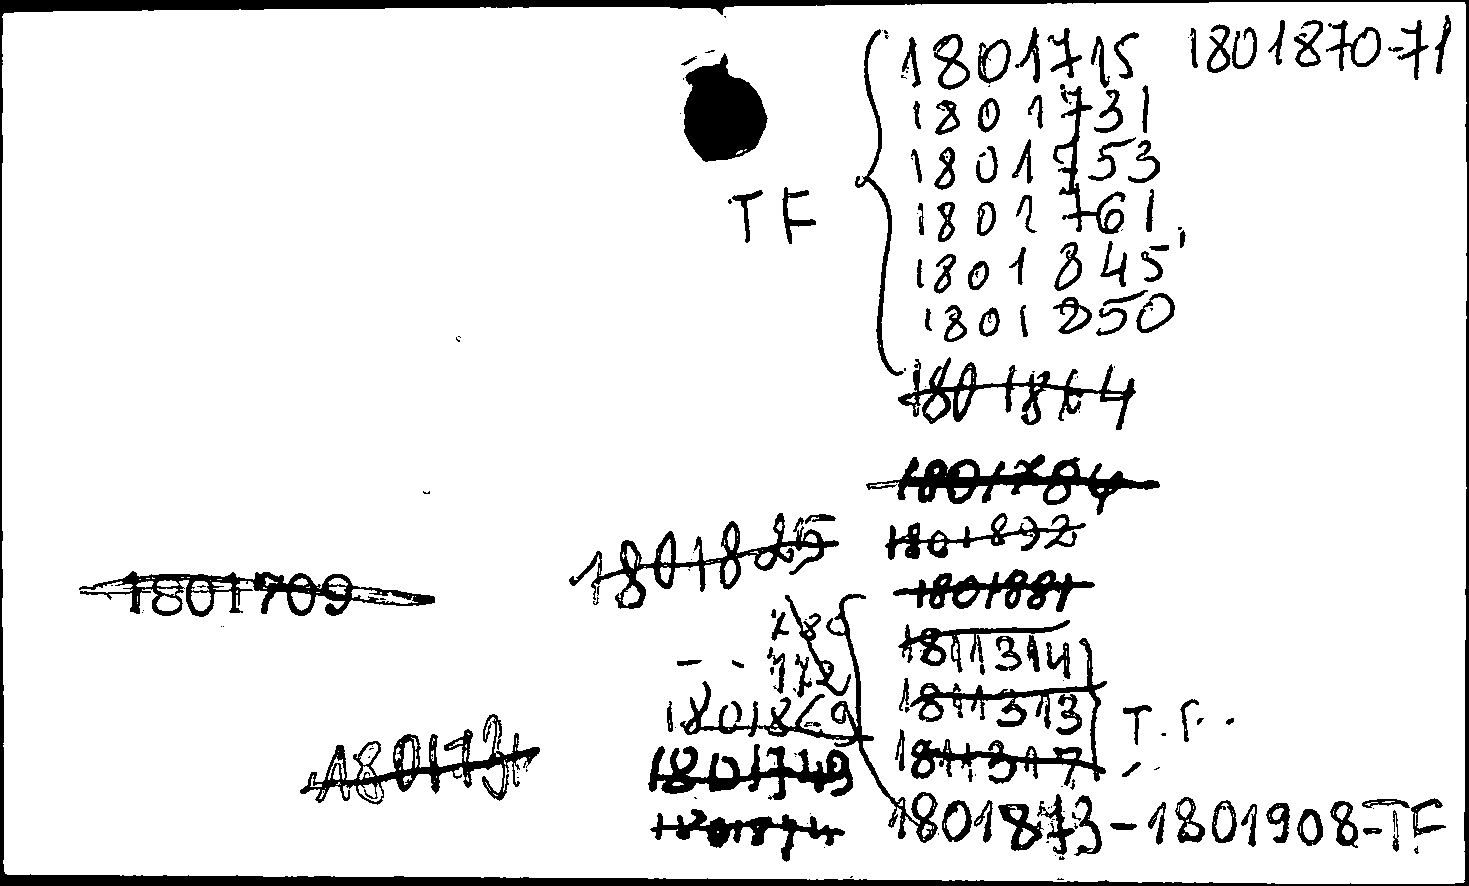 1801715 1801870-71
1801731
1801753
TF
1801761
1801845
1801850
1801864
1801784
1801825
1801892
1801709
1801881
780
1811314
772
1811313
T.F.
1801869
1811317
1801731
1801749
1801873-1801908-TF